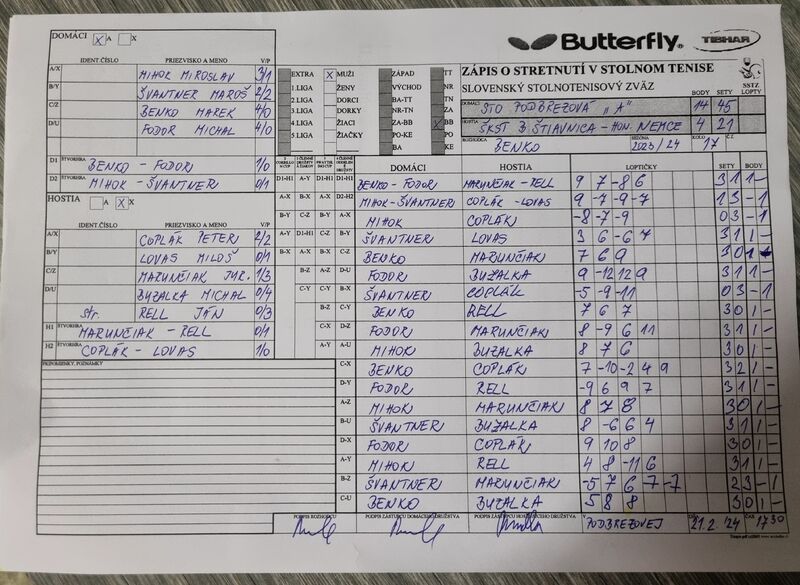 DOMÁCI X A X
Butterfly TIBHAR
IDENT.ČÍSLO PRIEZVISKO A MENO V/P
A/X MIHOK MIROSLAV 3/1
B/Y ŠVANTNER MAROŠ 2/2
C/Z BENKO MAREK 4/0
D/U FODOR MICHAL 4/0
D1 ŠTVORHRA BENKO - FODOR 1/0
D2 ŠTVORHRA MIHOK - ŠVANTNER 0/1
EXTRA X MUŽI ZÁPAD TT
1.LIGA ŽENY VÝCHOD NR
2.LIGA DORCI BA-TT TN
3.LIGA DORKY NR-TN ZA
4.LIGA ŽIACI ZA-BB X BB
5.LIGA ŽIAČKY PO-KE PO
BA KE
ZÁPIS O STRETNUTÍ V STOLNOM TENISE
SLOVENSKÝ STOLNOTENISOVÝ ZVÄZ
SSTZ
BODY SETY LOPTY
DOMÁCI STO PODBREZOVÁ "A" 14 45
HOSTIA ŠKST B. ŠTIAVNICA - HON. NEMCE 4 21
ROZHODCA BENKO SEZÓNA 2023/24 KOLO 17 Č.Z.
HOSTIA A X X
IDENT.ČÍSLO PRIEZVISKO A MENO V/P
A/X COPLÁK PETER 2/2
B/Y LOVAS MILOŠ 0/1
C/Z MARUNČIAK JUR. 1/3
D/U BUZALKA MICHAL 0/4
str. RELL JÁN 0/3
H1 ŠTVORHRA MARUNČIAK - RELL 0/1
H2 ŠTVORHRA COPLÁK - LOVAS 1/0
PRIPOMIENKY, POZNÁMKY
DOMÁCI HOSTIA LOPTIČKY SETY BODY
D1-H1 A-Y D1-H1 D1-H1 BENKO - FODOR MARUNČIAK - RELL 9 7 -8 6 3 1 1 -
A-X B-X A-X D2-H2 MIHOK - ŠVANTNER COPLÁK - LOVAS 9 -7 -9 -7 1 3 - 1
B-Y C-Z B-Y A-X MIHOK COPLÁK -8 -7 -9 0 3 - 1
A-Y D1-H1 C-Z B-Y ŠVANTNER LOVAS 3 6 -6 7 3 1 1 -
B-X A-X B-X C-Z BENKO MARUNČIAK 7 6 9 3 0 1 -
B-Z A-Z D-U FODOR BUZALKA 9 -12 12 9 3 1 1 -
C-Y C-Y B-X ŠVANTNER COPLÁK -5 -9 -11 0 3 - 1
B-Z C-Y BENKO RELL 7 6 7 3 0 1 -
C-X D-Z FODOR MARUNČIAK 8 -9 6 11 3 1 1 -
A-Y A-U MIHOK BUZALKA 8 7 6 3 0 1 -
C-X BENKO COPLÁK 7 -10 -2 4 9 3 2 1 -
D-Y FODOR RELL -9 6 9 7 3 1 1 -
A-Z MIHOK MARUNČIAK 8 7 8 3 0 1 -
B-U ŠVANTNER BUZALKA 8 -6 6 4 3 1 1 -
D-X FODOR COPLÁK 9 10 8 3 0 1 -
A-Y MIHOK RELL 4 8 -11 6 3 1 1 -
B-Z ŠVANTNER MARUNČIAK -5 7 6 -7 -7 2 3 - 1
C-U BENKO BUZALKA 5 8 8 3 0 1 -
PODPIS ROZHODCU PODPIS ZÁSTUPCU DOMÁCEHO DRUŽSTVA PODPIS ZÁSTUPCU HOSŤUJÚCEHO DRUŽSTVA
V PODBREZOVEJ DŇA 21.2.'24 ČAS 17 30